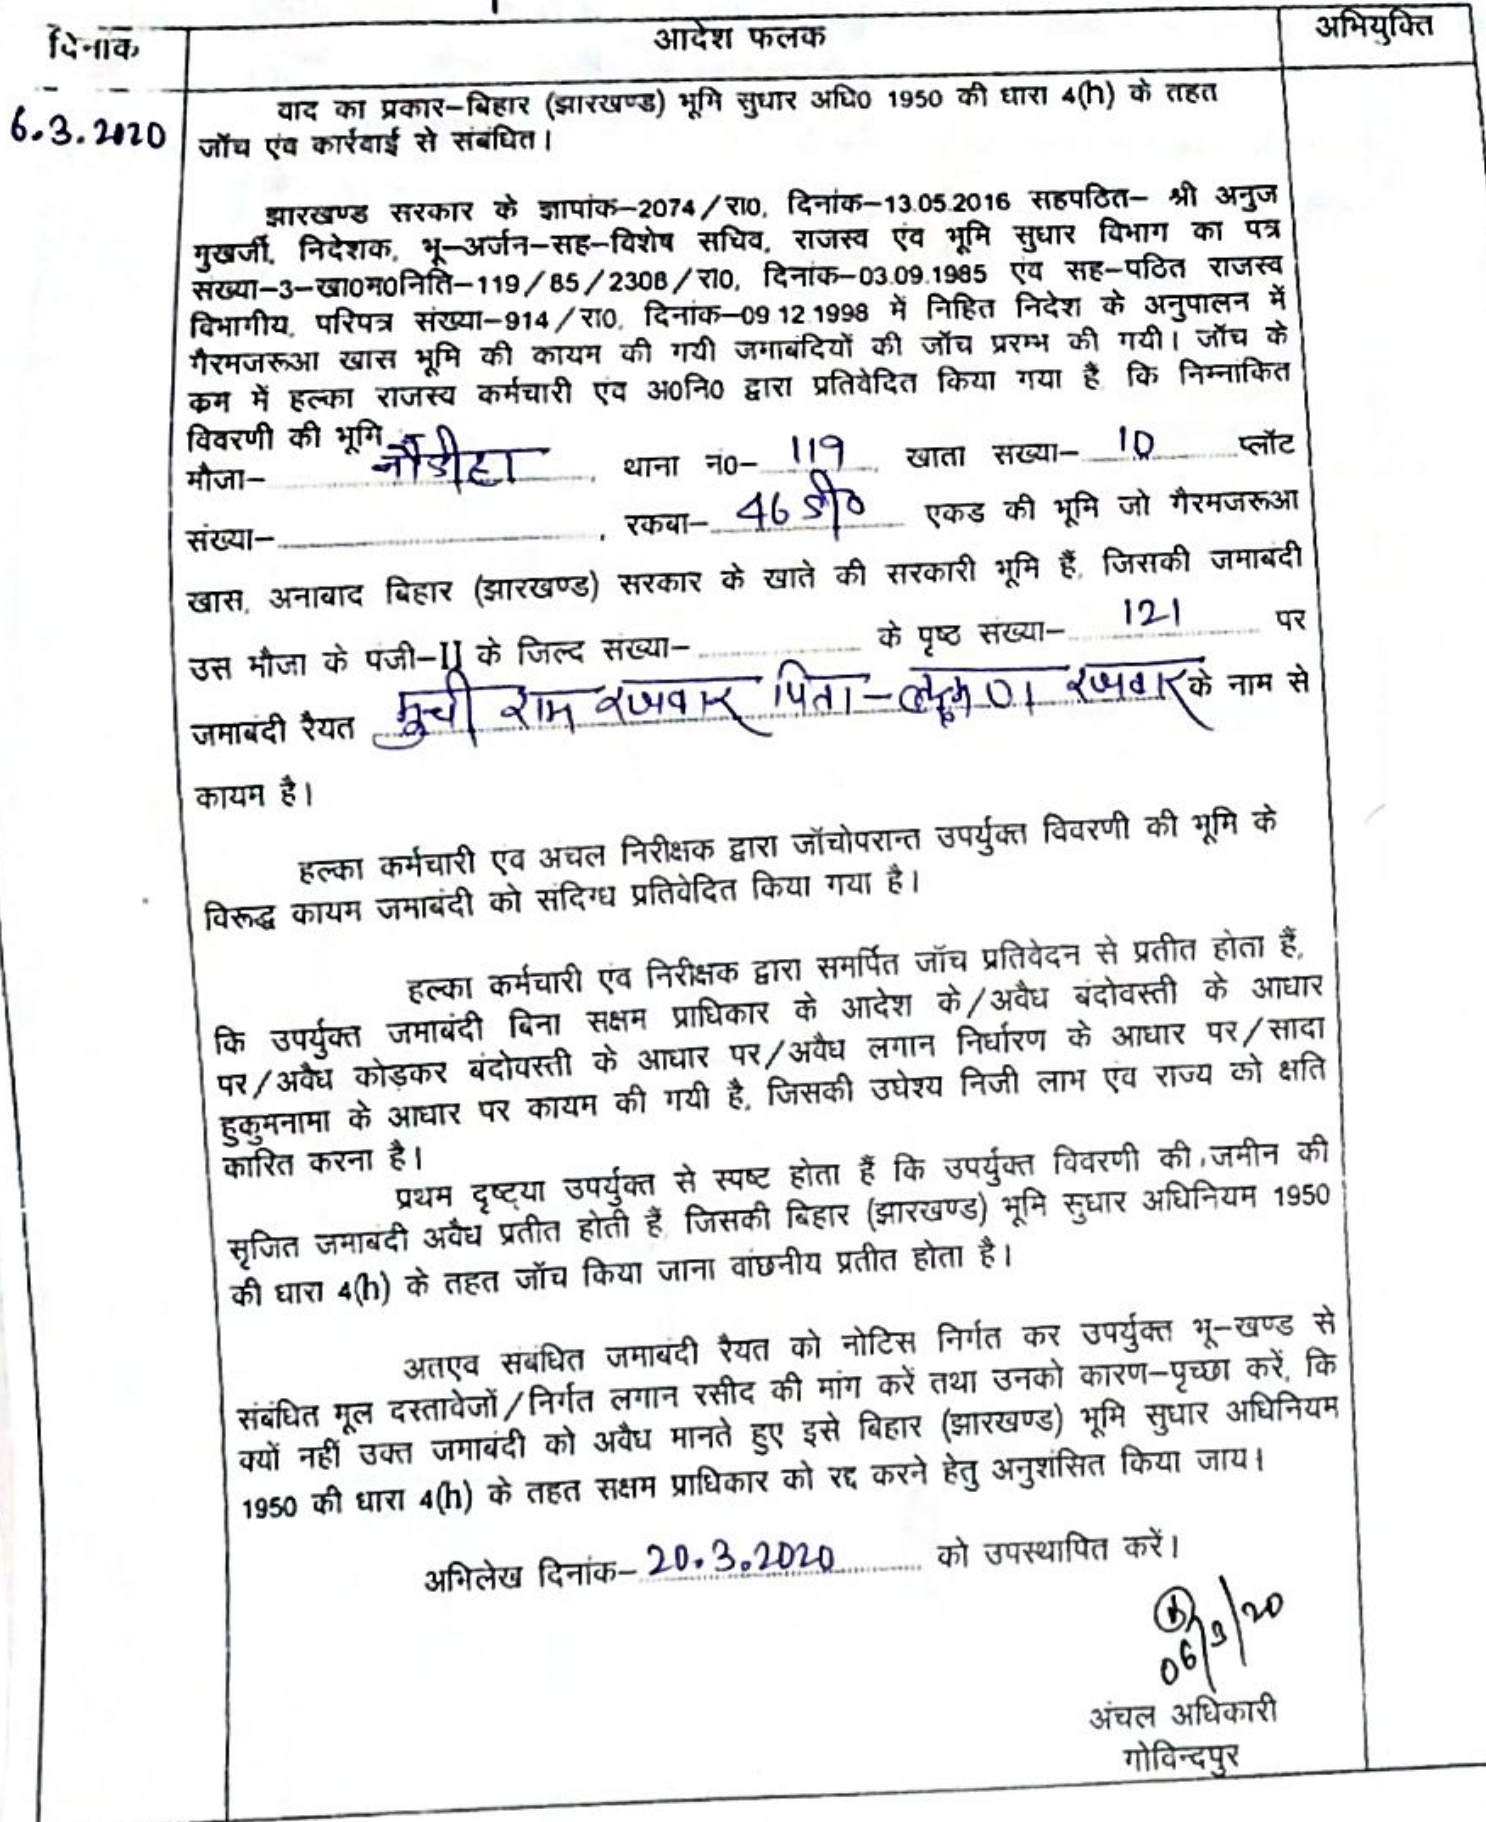 दिनांक आदेश फलक अभियुक्ति
6.3.2020
वाद का प्रकार–बिहार (झारखण्ड) भूमि सुधार अधि0 1950 की धारा 4(h) के तहत
जॉच एंव कार्रवाई से संबंधित।
झारखण्ड सरकार के ज्ञापांक–2074/रा0, दिनांक–13.05.2016 सहपठित– श्री अनुज
मुखर्जी, निदेशक, भू–अर्जन–सह–विशेष सचिव, राजस्व एंव भूमि सुधार विभाग का पत्र
संख्या–3–खा0म0निति–119/85/2308/रा0, दिनांक–03.09.1985 एंव सह–पठित राजस्व
विभागीय, परिपत्र संख्या–914/रा0, दिनांक–09 12 1998 में निहित निदेश के अनुपालन में
गैरमजरूआ खास भूमि की कायम की गयी जमाबंदियों की जॉच प्ररम्भ की गयी। जॉच के
कम में हल्का राजस्व कर्मचारी एंव अ0नि0 द्वारा प्रतिवेदित किया गया है, कि निम्नांकित
विवरणी की भूमि –
मौजा– नौडीहा, थाना नं0– 119, खाता संख्या– 10 प्लॉट
संख्या– , रकबा– 46 डी0 एकड की भूमि जो गैरमजरूआ
खास, अनाबाद बिहार (झारखण्ड) सरकार के खाते की सरकारी भूमि हैं, जिसकी जमाबंदी
उस मौजा के पंजी–II के जिल्द संख्या– के पृष्ठ संख्या– 121 पर
जमाबंदी रैयत मुची राम रजवार पिता – लक्ष्मण रजवार के नाम से
कायम है।
हल्का कर्मचारी एंव अंचल निरीक्षक द्वारा जॉचोपरान्त उपर्युक्त विवरणी की भूमि के
विरूद्ध कायम जमाबंदी को संदिग्ध प्रतिवेदित किया गया है।
हल्का कर्मचारी एंव निरीक्षक द्वारा समर्पित जॉच प्रतिवेदन से प्रतीत होता हैं,
कि उपर्युक्त जमाबंदी बिना सक्षम प्राधिकार के आदेश के/अवैध बंदोवस्ती के आधार
पर/अवैध कोड़कर बंदोवस्ती के आधार पर/अवैध लगान निर्धारण के आधार पर/सादा
हुकुमनामा के आधार पर कायम की गयी है, जिसकी उघेश्य निजी लाभ एंव राज्य को क्षति
कारित करना है।
प्रथम दृष्ट्या उपर्युक्त से स्पष्ट होता हैं कि उपर्युक्त विवरणी की जमीन की
सृजित जमाबंदी अवैध प्रतीत होती हैं, जिसकी बिहार (झारखण्ड) भूमि सुधार अधिनियम 1950
की धारा 4(h) के तहत जॉच किया जाना वांछनीय प्रतीत होता है।
अतएव संबंधित जमाबंदी रैयत को नोटिस निर्गत कर उपर्युक्त भू–खण्ड से
संबंधित मूल दस्तावेजों/निर्गत लगान रसीद की मांग करें तथा उनको कारण–पृच्छा करें, कि
क्यों नहीं उक्त जमाबंदी को अवैध मानते हुए इसे बिहार (झारखण्ड) भूमि सुधार अधिनियम
1950 की धारा 4(h) के तहत सक्षम प्राधिकार को रद्द करने हेतु अनुशंसित किया जाय।
अभिलेख दिनांक– 20.3.2020 को उपस्थापित करें।
06/3/20
अंचल अधिकारी
गोविन्दपुर